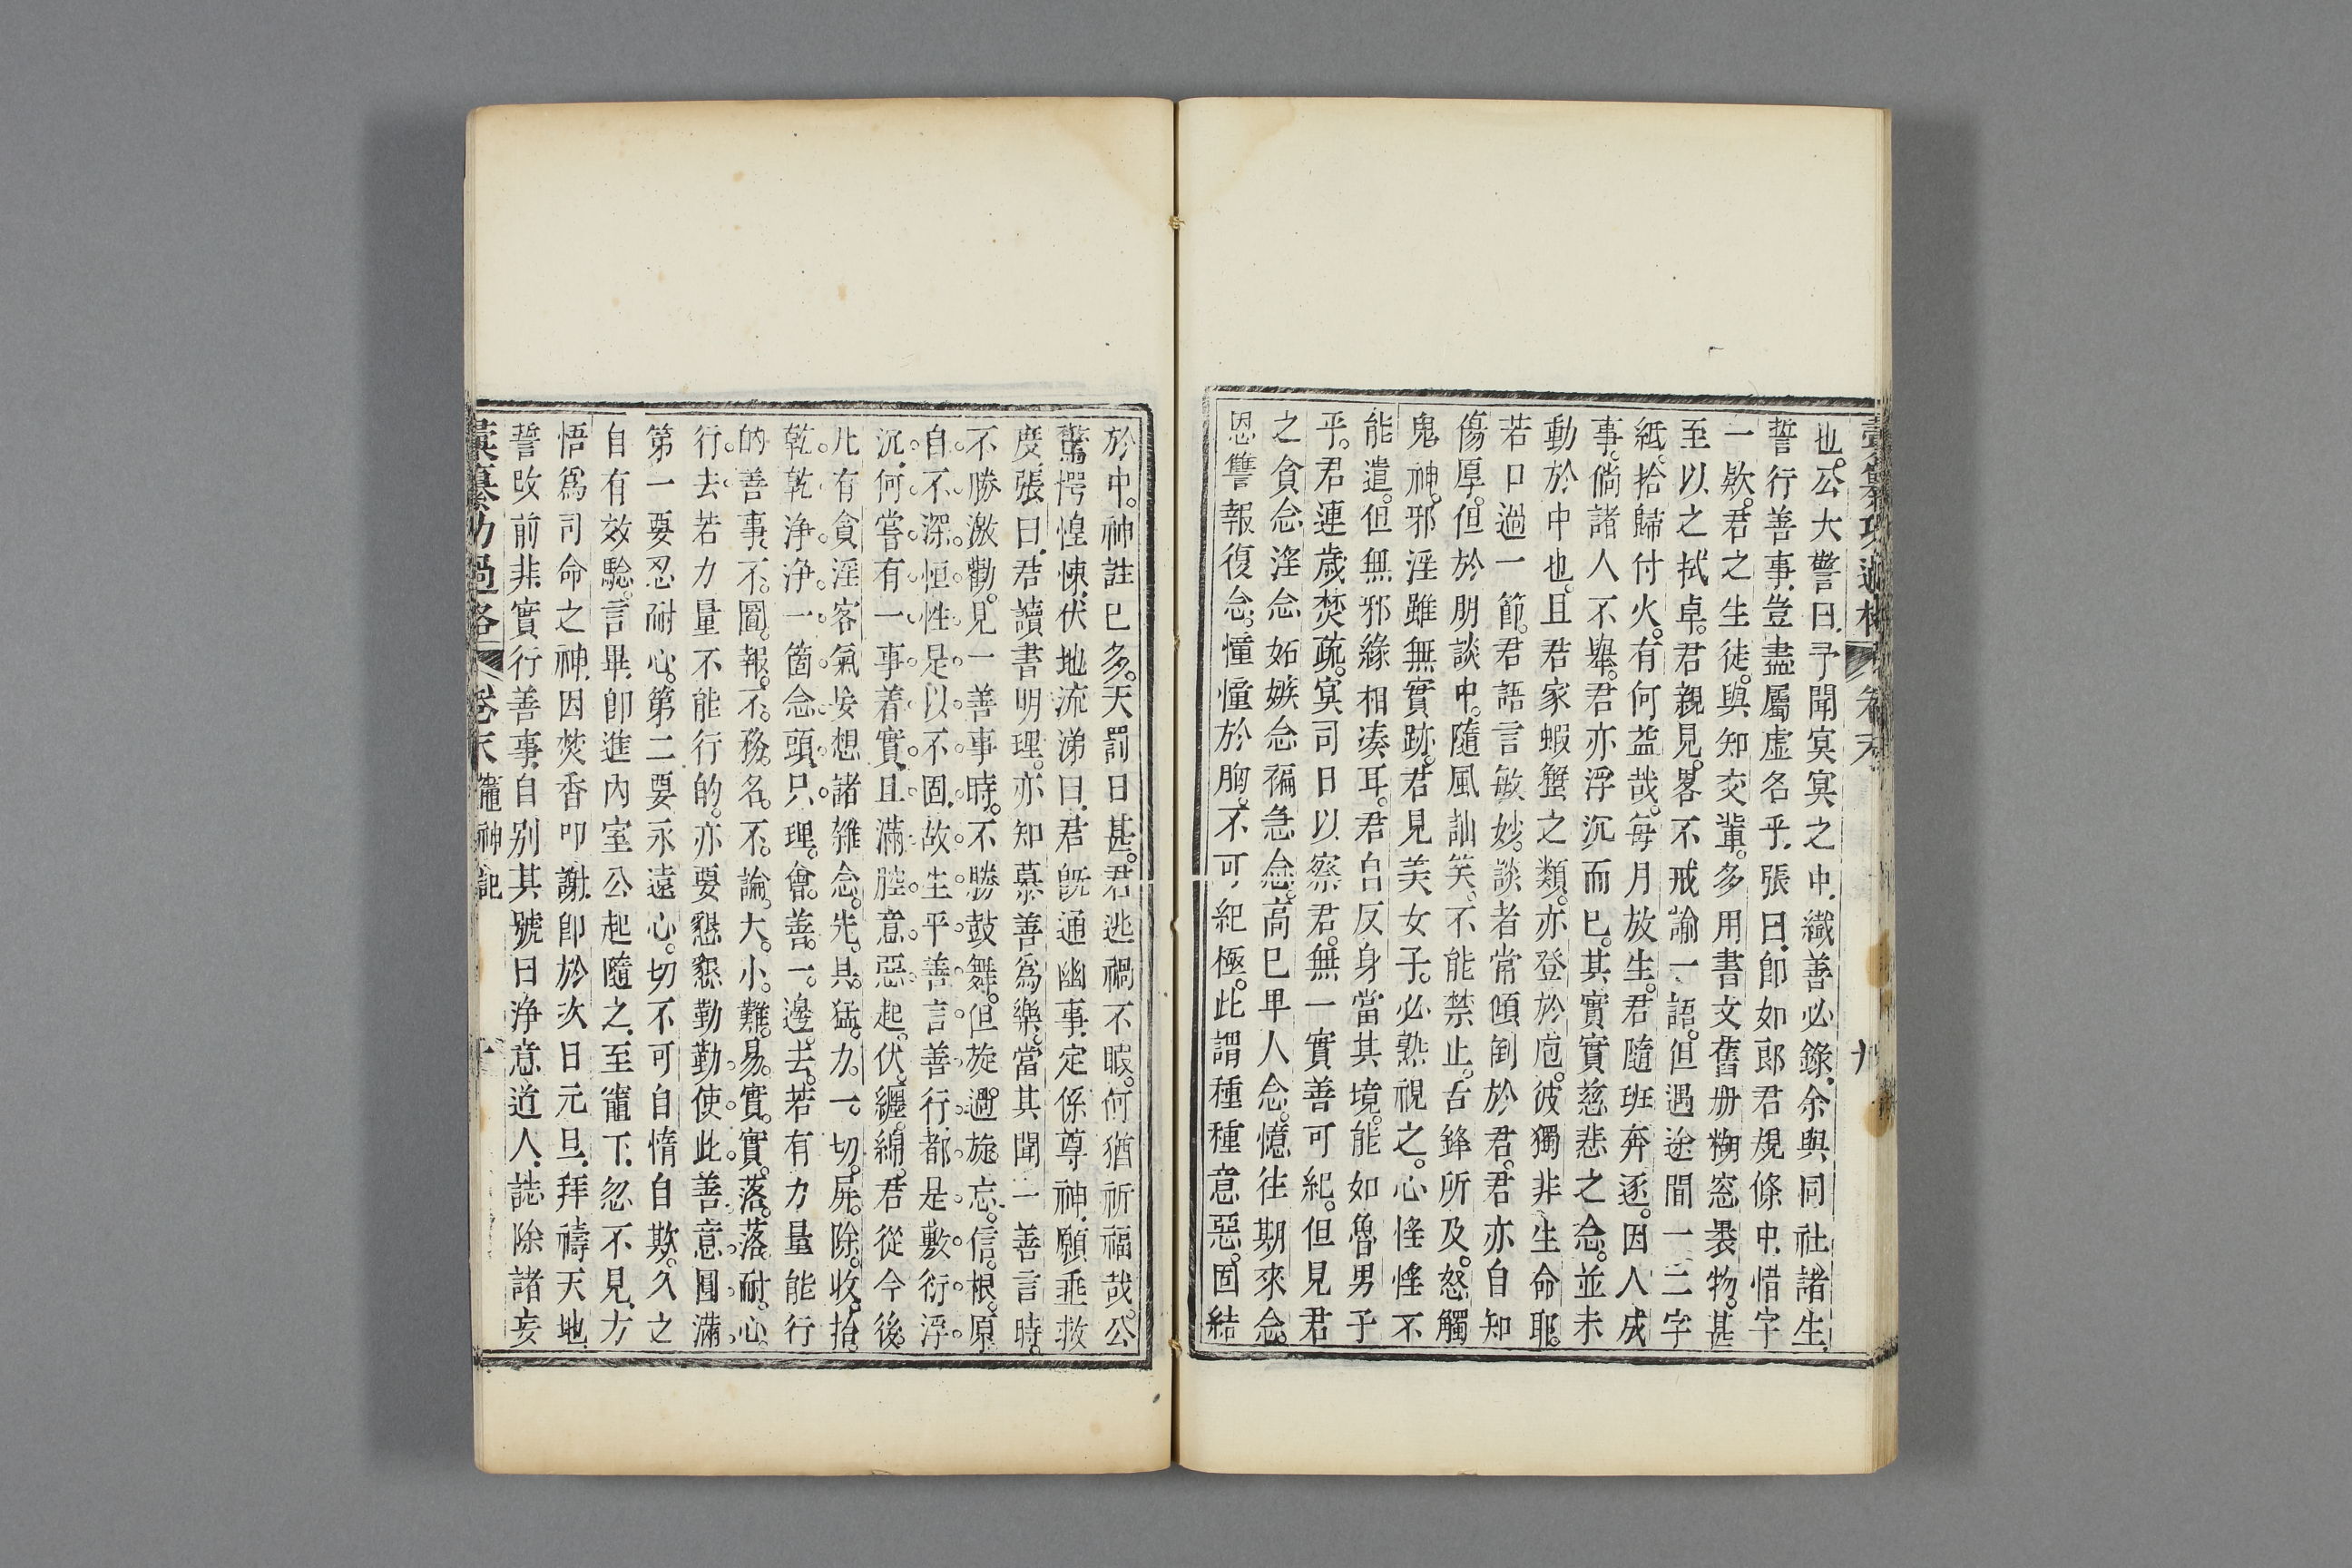 也。公大驚曰。予聞冥冥之中。纖善必錄。余與同社諸生。
誓行善事。豈盡屬虛名乎。張曰。卽如郎君規條中。惜字
一欵。君之生徒。與知交輩。多用書文舊册糊窓裹物。甚
至以之拭卓。君親見。畧不戒諭一語。但遇途間一二字
紙。拾歸付火。有何益哉。每月放生。君隨班奔逐。因人成
事。倘諸人不舉。君亦浮沉而已。其實實慈悲之念。並未
動於中也。且君家蝦蟹之類。亦登於庖。彼獨非生命耶。
若口過一節。君語言敏妙。談者常傾倒於君。君亦自知
傷厚。但於朋談中。隨風訕笑。不能禁止。舌鋒所及。怒觸
鬼神。邪淫雖無實跡。君見美女子。必熟視之。心怪怪不
能遣。但無邪緣相凑耳。君自反身當其境。能如魯男子
乎。君連歲焚疏。冥司日以察君。無一實善可紀。但見君
之貪念淫念妬嫉念褊急念。高已卑人念。憶往期來念。
恩讐報復念。憧憧於胸。不可紀極。此謂種種意惡。固結
於中。神註已多。天罰日甚。君逃禍不暇。何猶祈福哉。公
驚愕惶悚。伏地流涕曰。君旣通幽事。定係尊神。願垂救
度。張曰。君讀書明理。亦知慕善爲樂。當其聞一善言時。
不勝激勸。見一善事時。不勝鼓舞。但旋遇旋忘。信根。原
自不深。恒性是以不固。故生平善言善行。都是敷衍浮
沉。何嘗有一事着實。且滿腔意惡。起伏。纏綿。君從今後。
凡有貪淫客氣妄想諸雜念。先具猛力。一切屏除。收拾。
乾乾浄浄。一箇念頭。只理會善一邊去。若有力量能行
的善事。不圖報。不務名。不論大小難易。實實落落。耐心
行去。若力量不能行的。亦要懇懇勤勤。使此善意圓滿
第一要忍耐心。第二要永遠心。切不可自惰自欺。久之
自有效驗。言畢。卽進內室。公起隨之。至竈下。忽不見。方
悟爲司命之神。因焚香叩謝。卽於次日元旦。拜禱天地
誓改前非。實行善事。自别其號曰浄意道人。誌除諸妄
彙纂功過格 卷末 竈神記 十